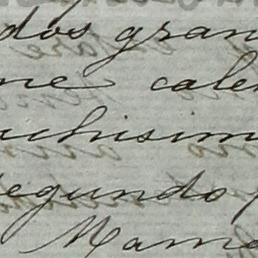 dos gran
me cale
uchisim
segundo
Mama